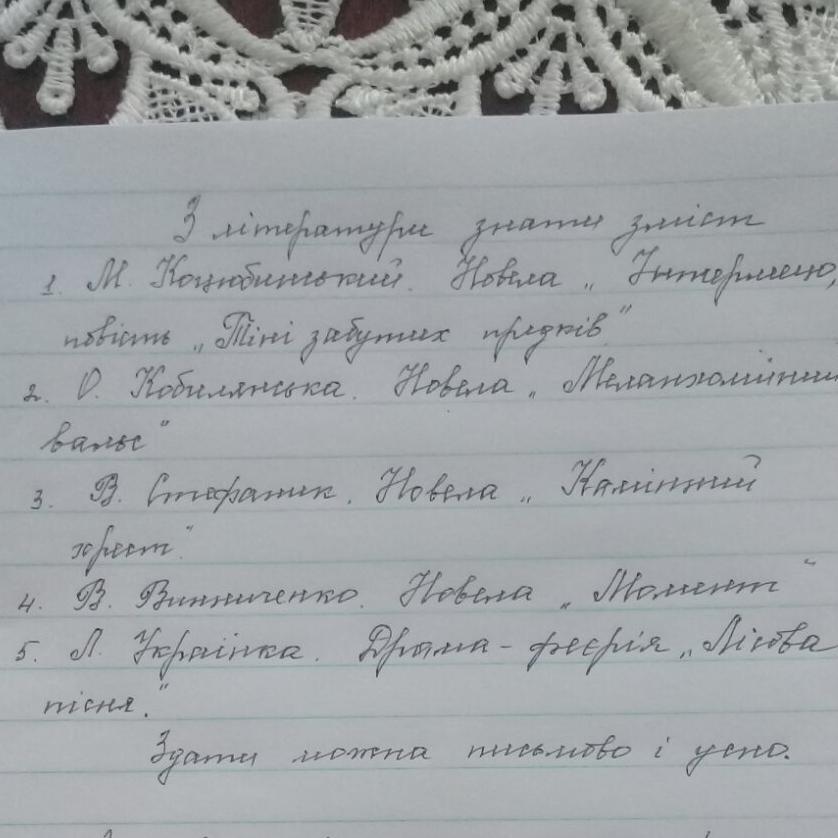 З літератури знати зміст
1. М. Коцюбинський. Новела „Інтермецо,
повість „Тіні забутих предків"
2. О. Кобилянська. Новела „Меланхолійний
вальс"
3. В. Стефаник. Новела „Камінний
хрест".
4. В. Винниченко. Новела „Момент"
5. Л. Українка. Драма-феєрія „Лісова
пісня."
Здати можна письмово і усно.